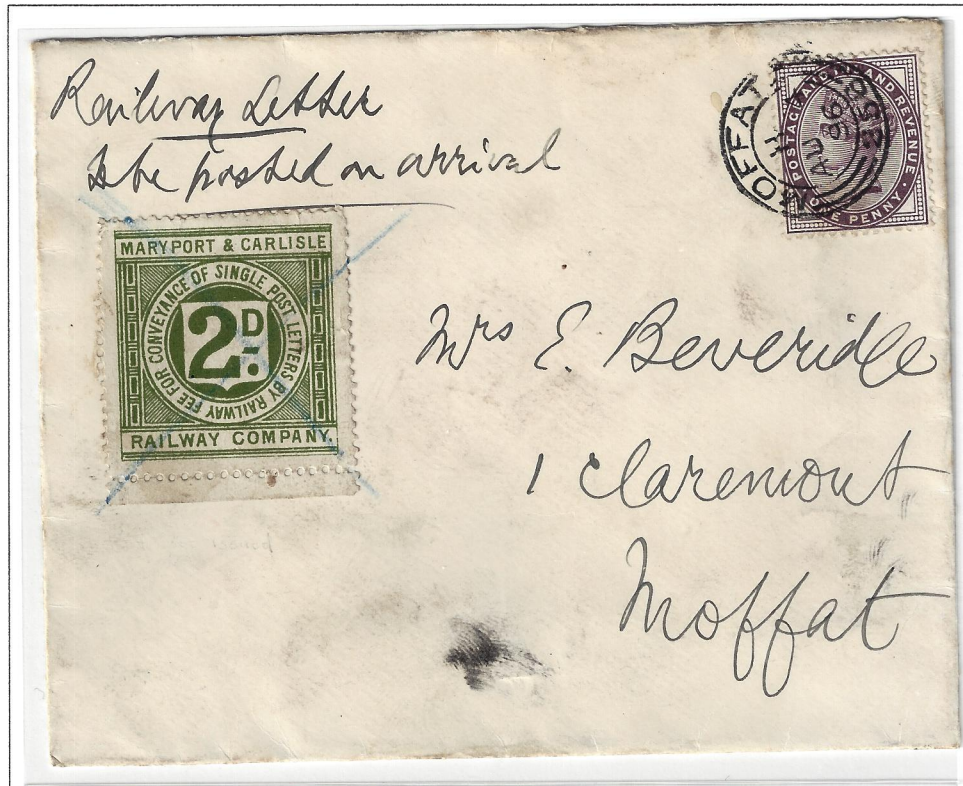 Railway Letter
to be posted on arrival
MOFFAT
AU
96
POSTAGE AND INLAND REVENUE
ONE PENNY
MARYPORT & CARLISLE
FEE FOR CONVEYANCE OF SINGLE POST LETTERS BY RAILWAY
2D.
RAILWAY COMPANY.
Mrs E. Beveridge
1 Claremont,
Moffat